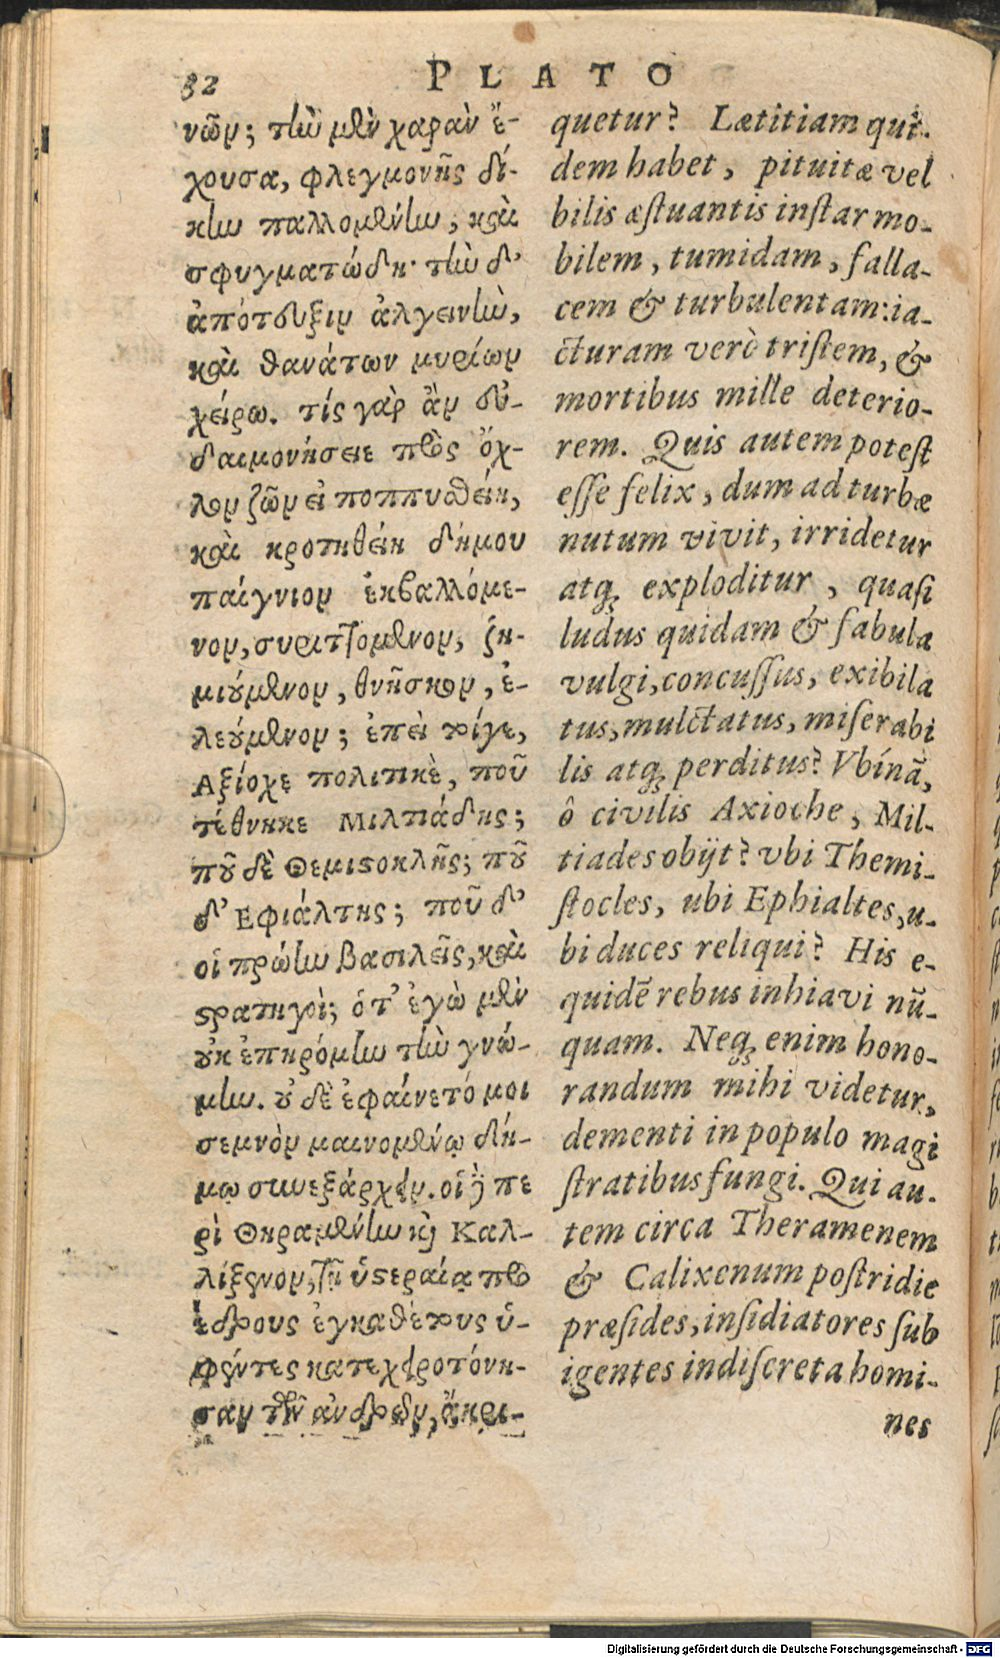 32
PLATO
νῶν; τὴν μὲν χαρὰν ἔ-
χουσα, φλεγμονῆς δί-
κην παλλομένην, καὶ
σφυγματώδη· τὴν δ'
ἀπότευξιν ἀλγεινὴν,
καὶ θανάτων μυρίων
χείρω. τίς γὰρ ἂν εὐ-
δαιμονήσειε πρὸς ὄχ-
λον ζῶν εἰ ποππυσθείη,
καὶ κροτηθείη δήμου
παίγνιον ἐκβαλλόμε-
νον, συριττόμενον, ζη-
μιούμενον, θνῆσκον, ἐ-
λεούμενον; ἐπεὶ τοίγε,
Αξίοχε πολιτικὲ, ποῦ
τέθνηκε Μιλτιάδης;
ποῦ δὲ Θεμιστοκλῆς; ποῦ
δ' Εφιάλτης; ποῦ δ'
οἱ πρώην βασιλεῖς, καὶ
στρατηγοὶ; ὅτ' ἐγὼ μὲν
οὐκ ἐπηρόμην τὴν γνώ-
μην. οὐ δὲ ἐφαίνετό μοι
σεμνὸν μαινομένῳ δή-
μῳ συνεξάρχειν. οἱ δὲ πε
ρὶ Θηραμένην καὶ Καλ-
λίξενον, τῇ ὑστεραίᾳ προ
έδρους ἐγκαθέτους ὑ-
φέντες κατεχειροτόνη-
σαν τῶν ἀνδρῶν, ἄκρι-
quetur? Lætitiam qui-
dem habet, pituitæ vel
bilis æstuantis instar mo-
bilem, tumidam, falla-
cem & turbulentam: ia-
cturam verò tristem, &
mortibus mille deterio-
rem. Quis autem potest
esse felix, dum ad turbæ
nutum vivit, irridetur
atq; exploditur, quasi
ludus quidam & fabula
vulgi, concussus, exibila
tus, mulctatus, miserabi
lis atq; perditus? Vbínã,
ô civilis Axioche, Mil-
tiades obijt? vbi Themi-
stocles, ubi Ephialtes, u-
bi duces reliqui? His e-
quidẽ rebus inhiavi nũ-
quam. Neq; enim hono-
randum mihi videtur,
dementi in populo magi
stratibus fungi. Qui au-
tem circa Theramenem
& Calixenum postridie
præsides, insidiatores sub
igentes indiscreta homi-
nes
Digitalisierung gefördert durch die Deutsche Forschungsgemeinschaft - DFG